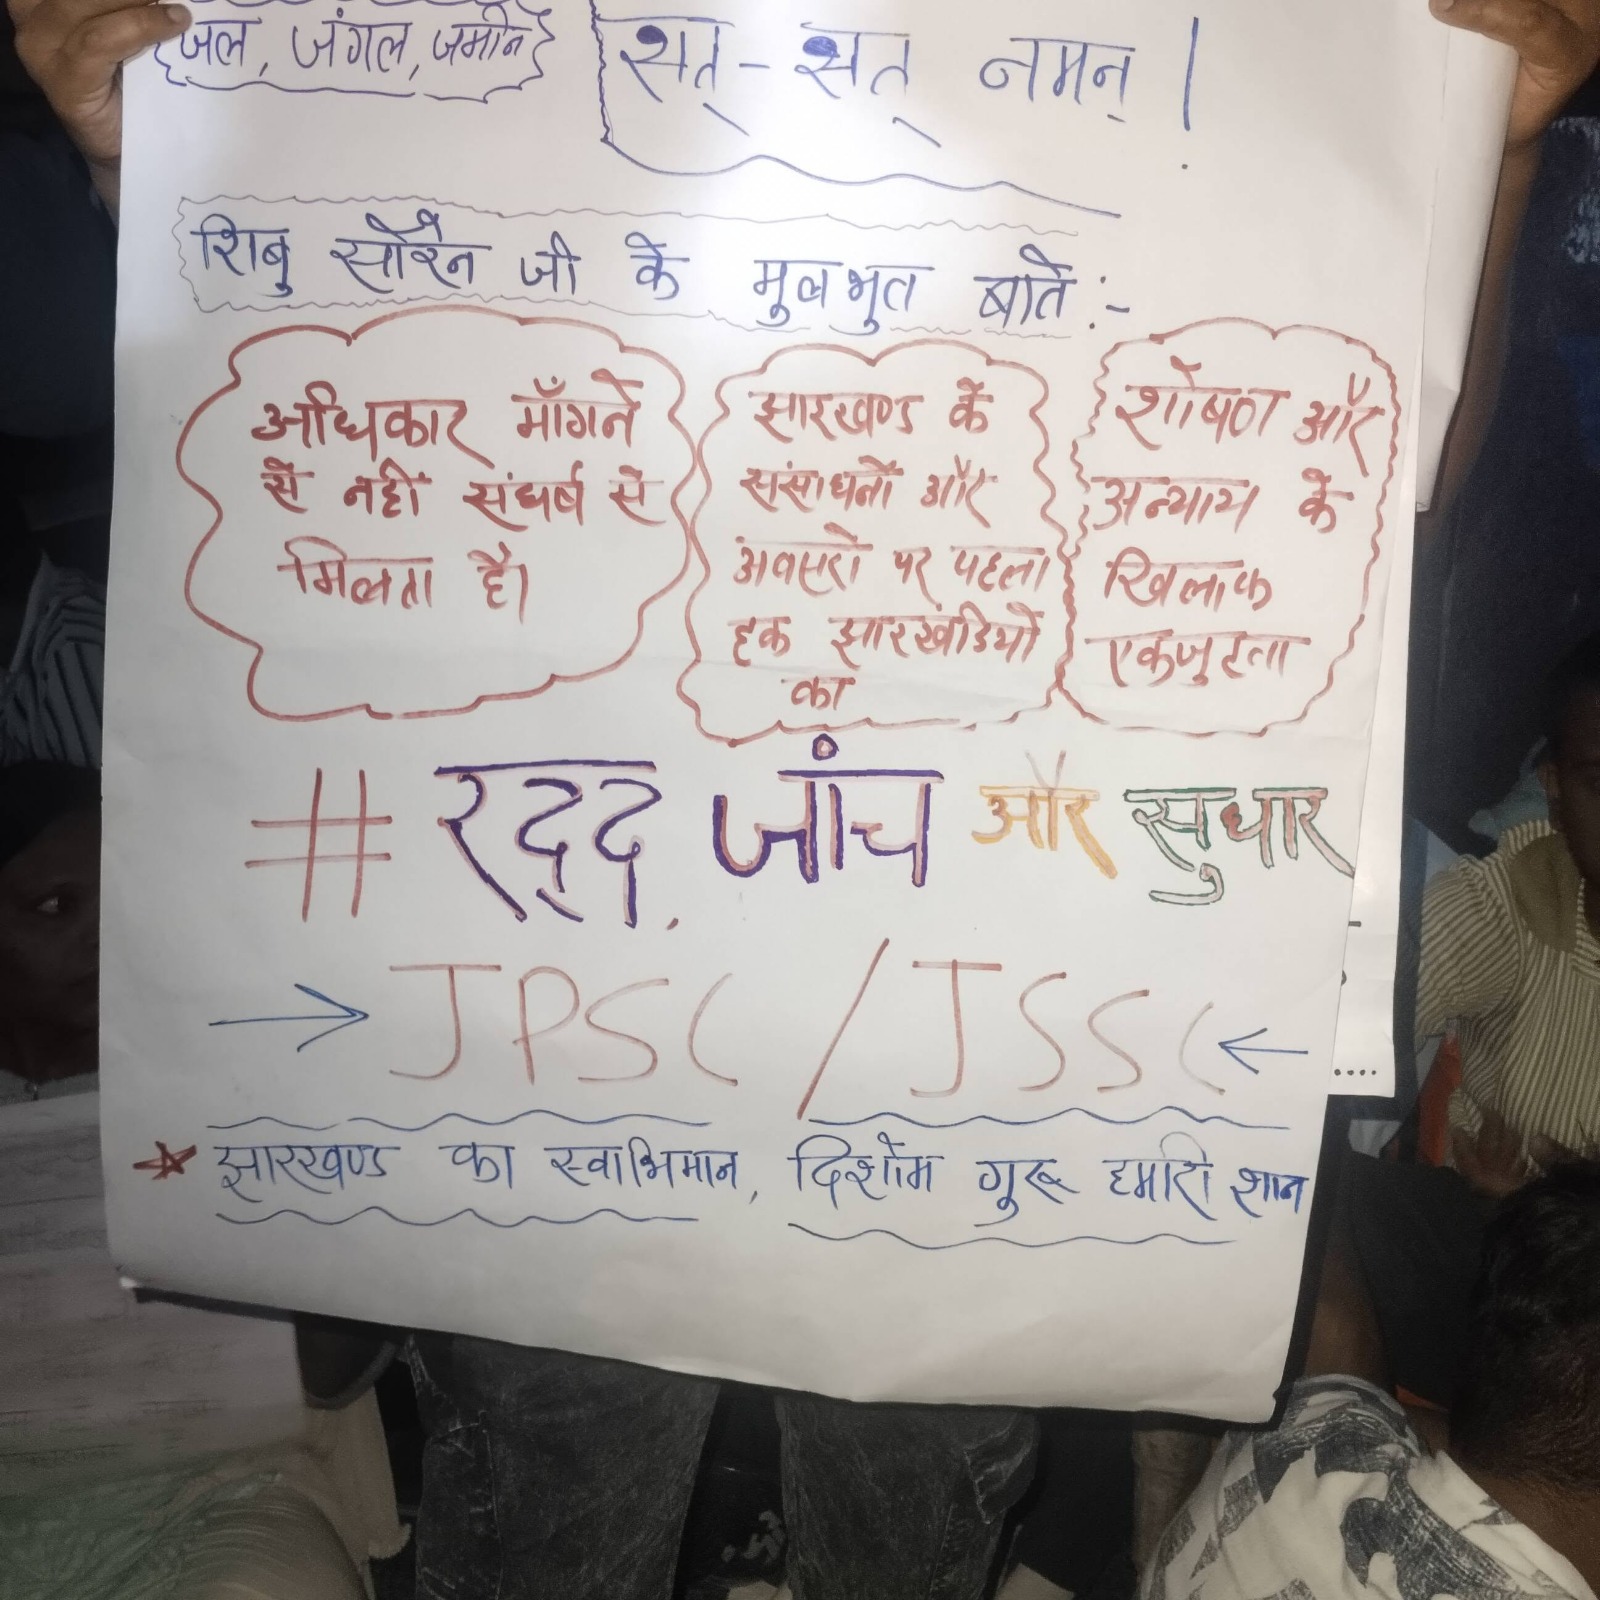 जल, जंगल, जमीन
सत् - सत् नमन् |
शिबु सोरेन जी के मुलभुत बाते :-
अधिकार माँगने
से नहीं संघर्ष से
मिलता है।
झारखण्ड के
संसाधनों और
अवसरो पर पहला
हक झारखंडियों
का
शोषण और
अन्याय के
खिलाफ
एकजुटता
# रद्द, जांच और सुधार
→ JPSC / JSSC ←
झारखण्ड का स्वाभिमान, दिशोम गुरू हमारी शान